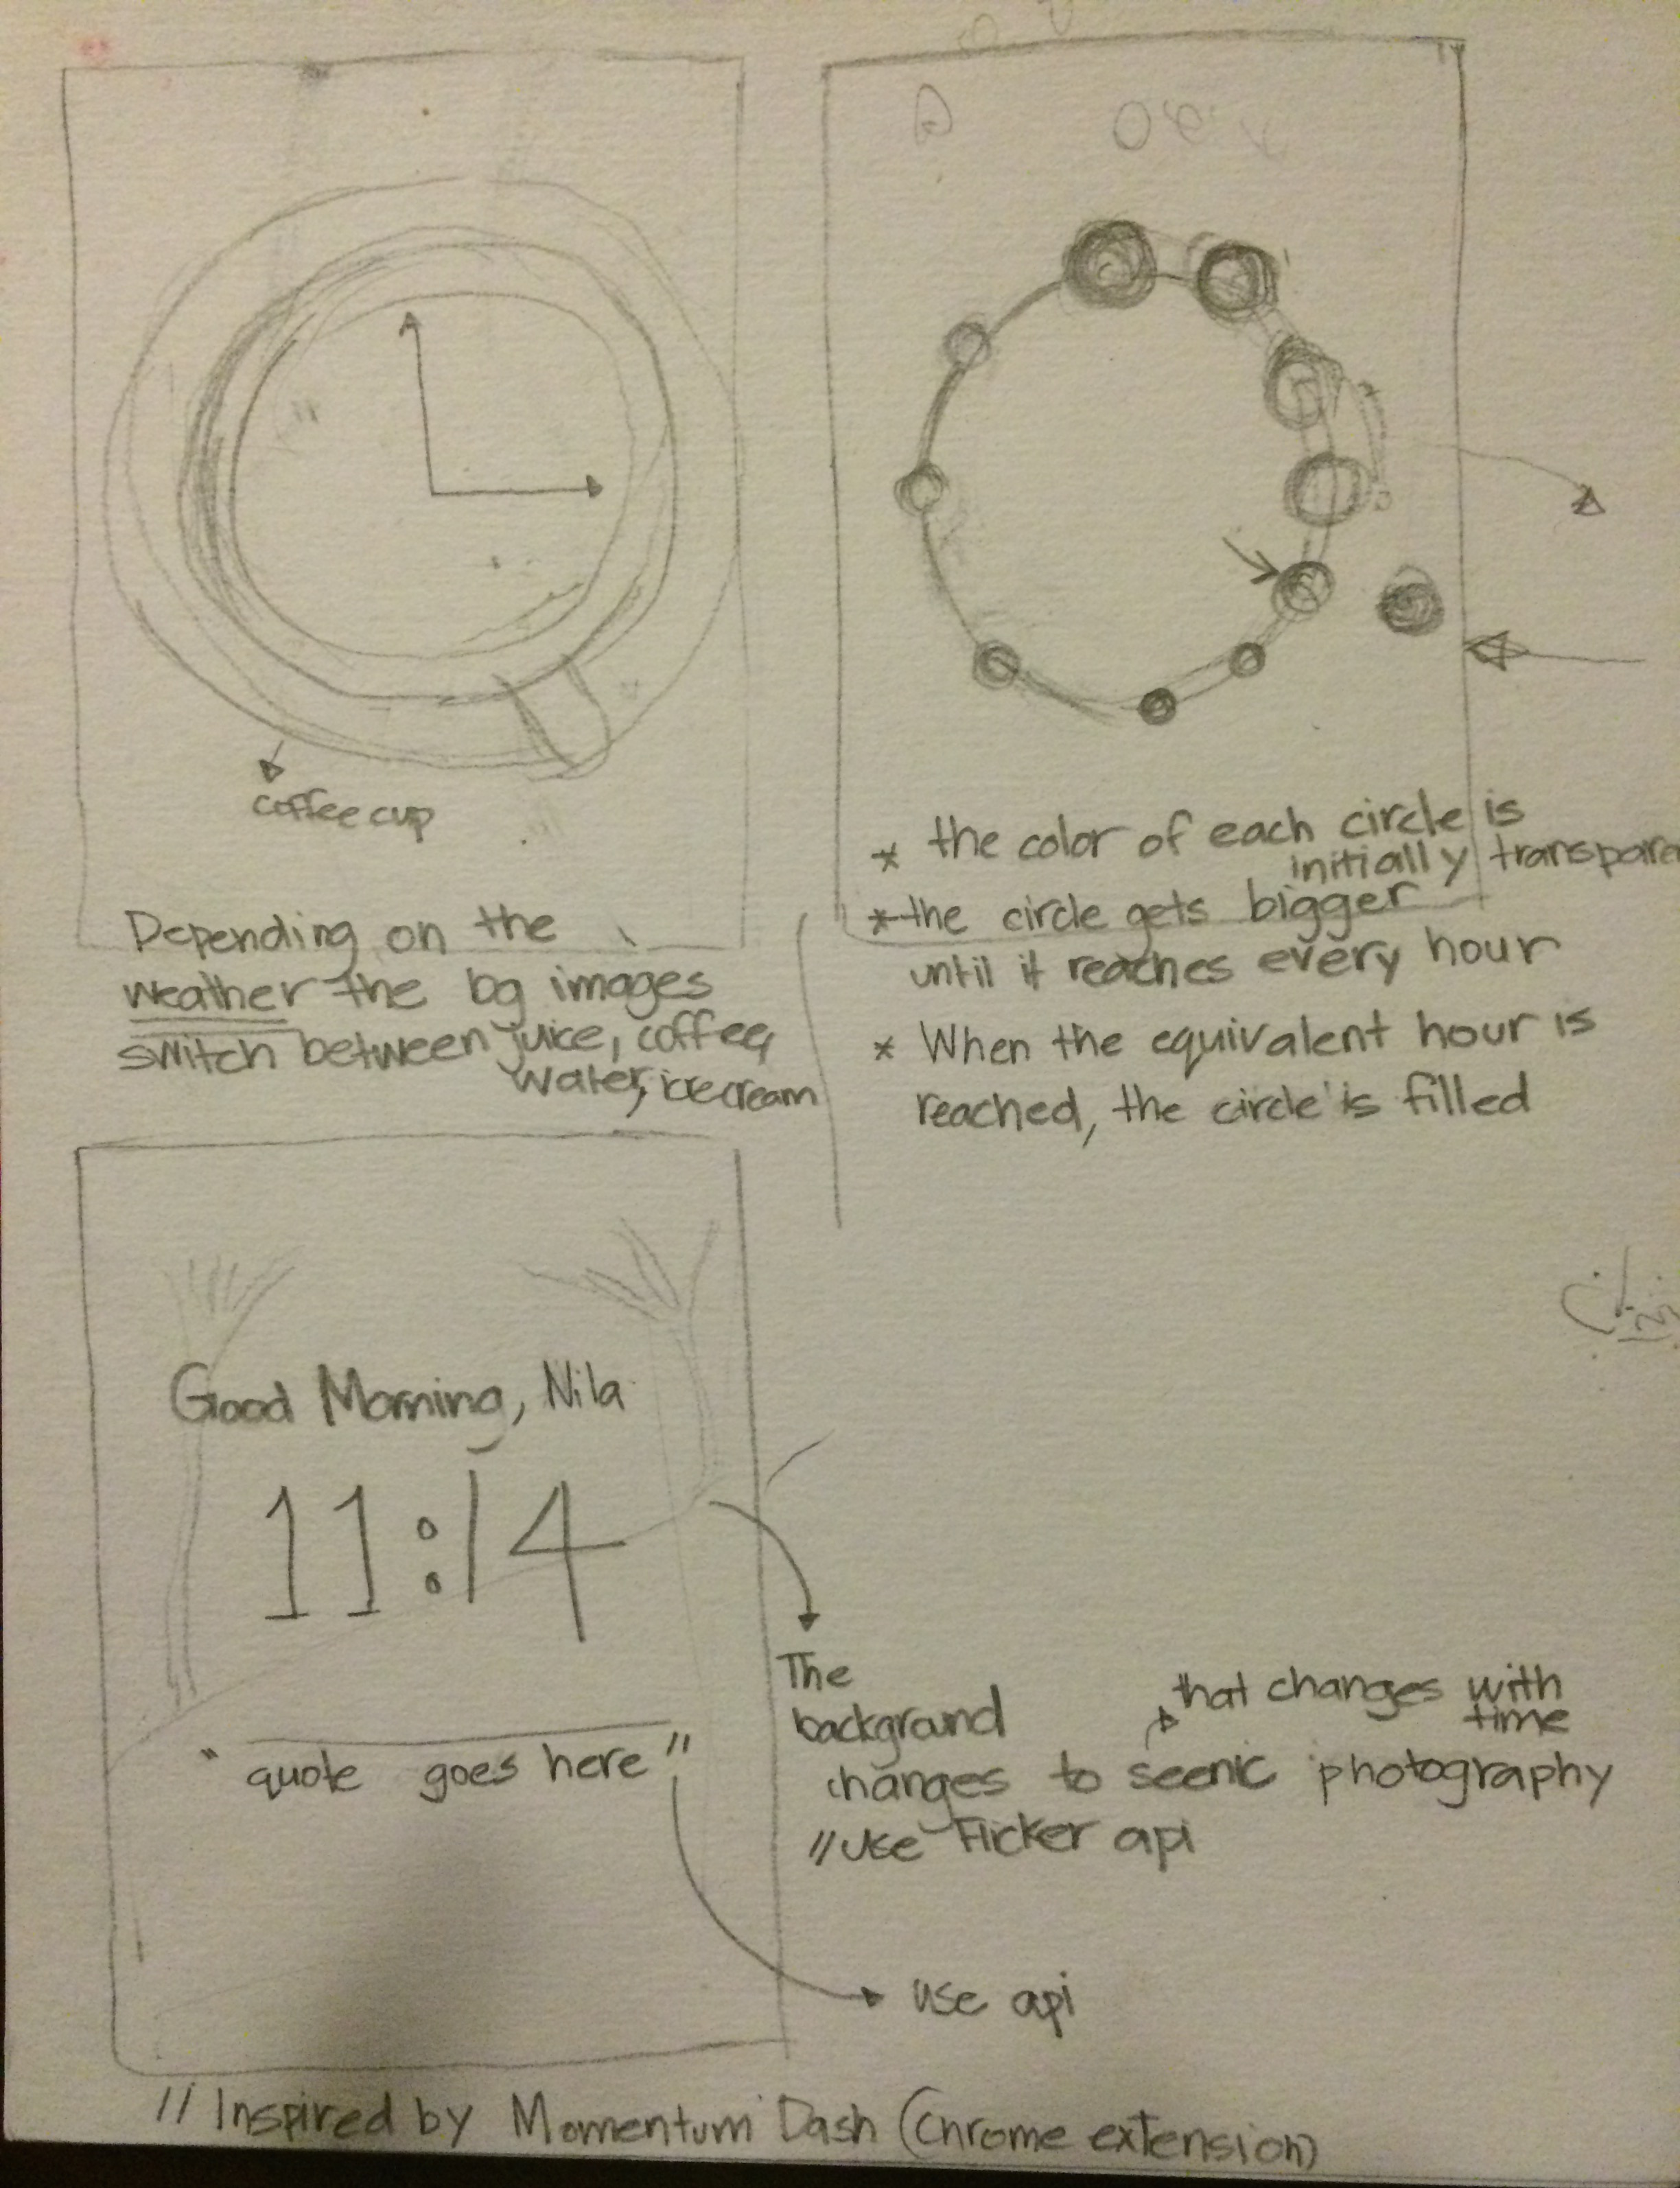 coffee cup
Depending on the
weather the bg images
switch between juice, coffee,
water, icecream
* the color of each circle is
initially transpare
* the circle gets bigger
until it reaches every hour
* When the equivalent hour is
reached, the circle is filled
Good Morning, Nila
11:14
" quote goes here "
The
background
that changes with
time
changes to scenic photography
// use Flicker api
use api
// Inspired by Momentum Dash (Chrome extension)